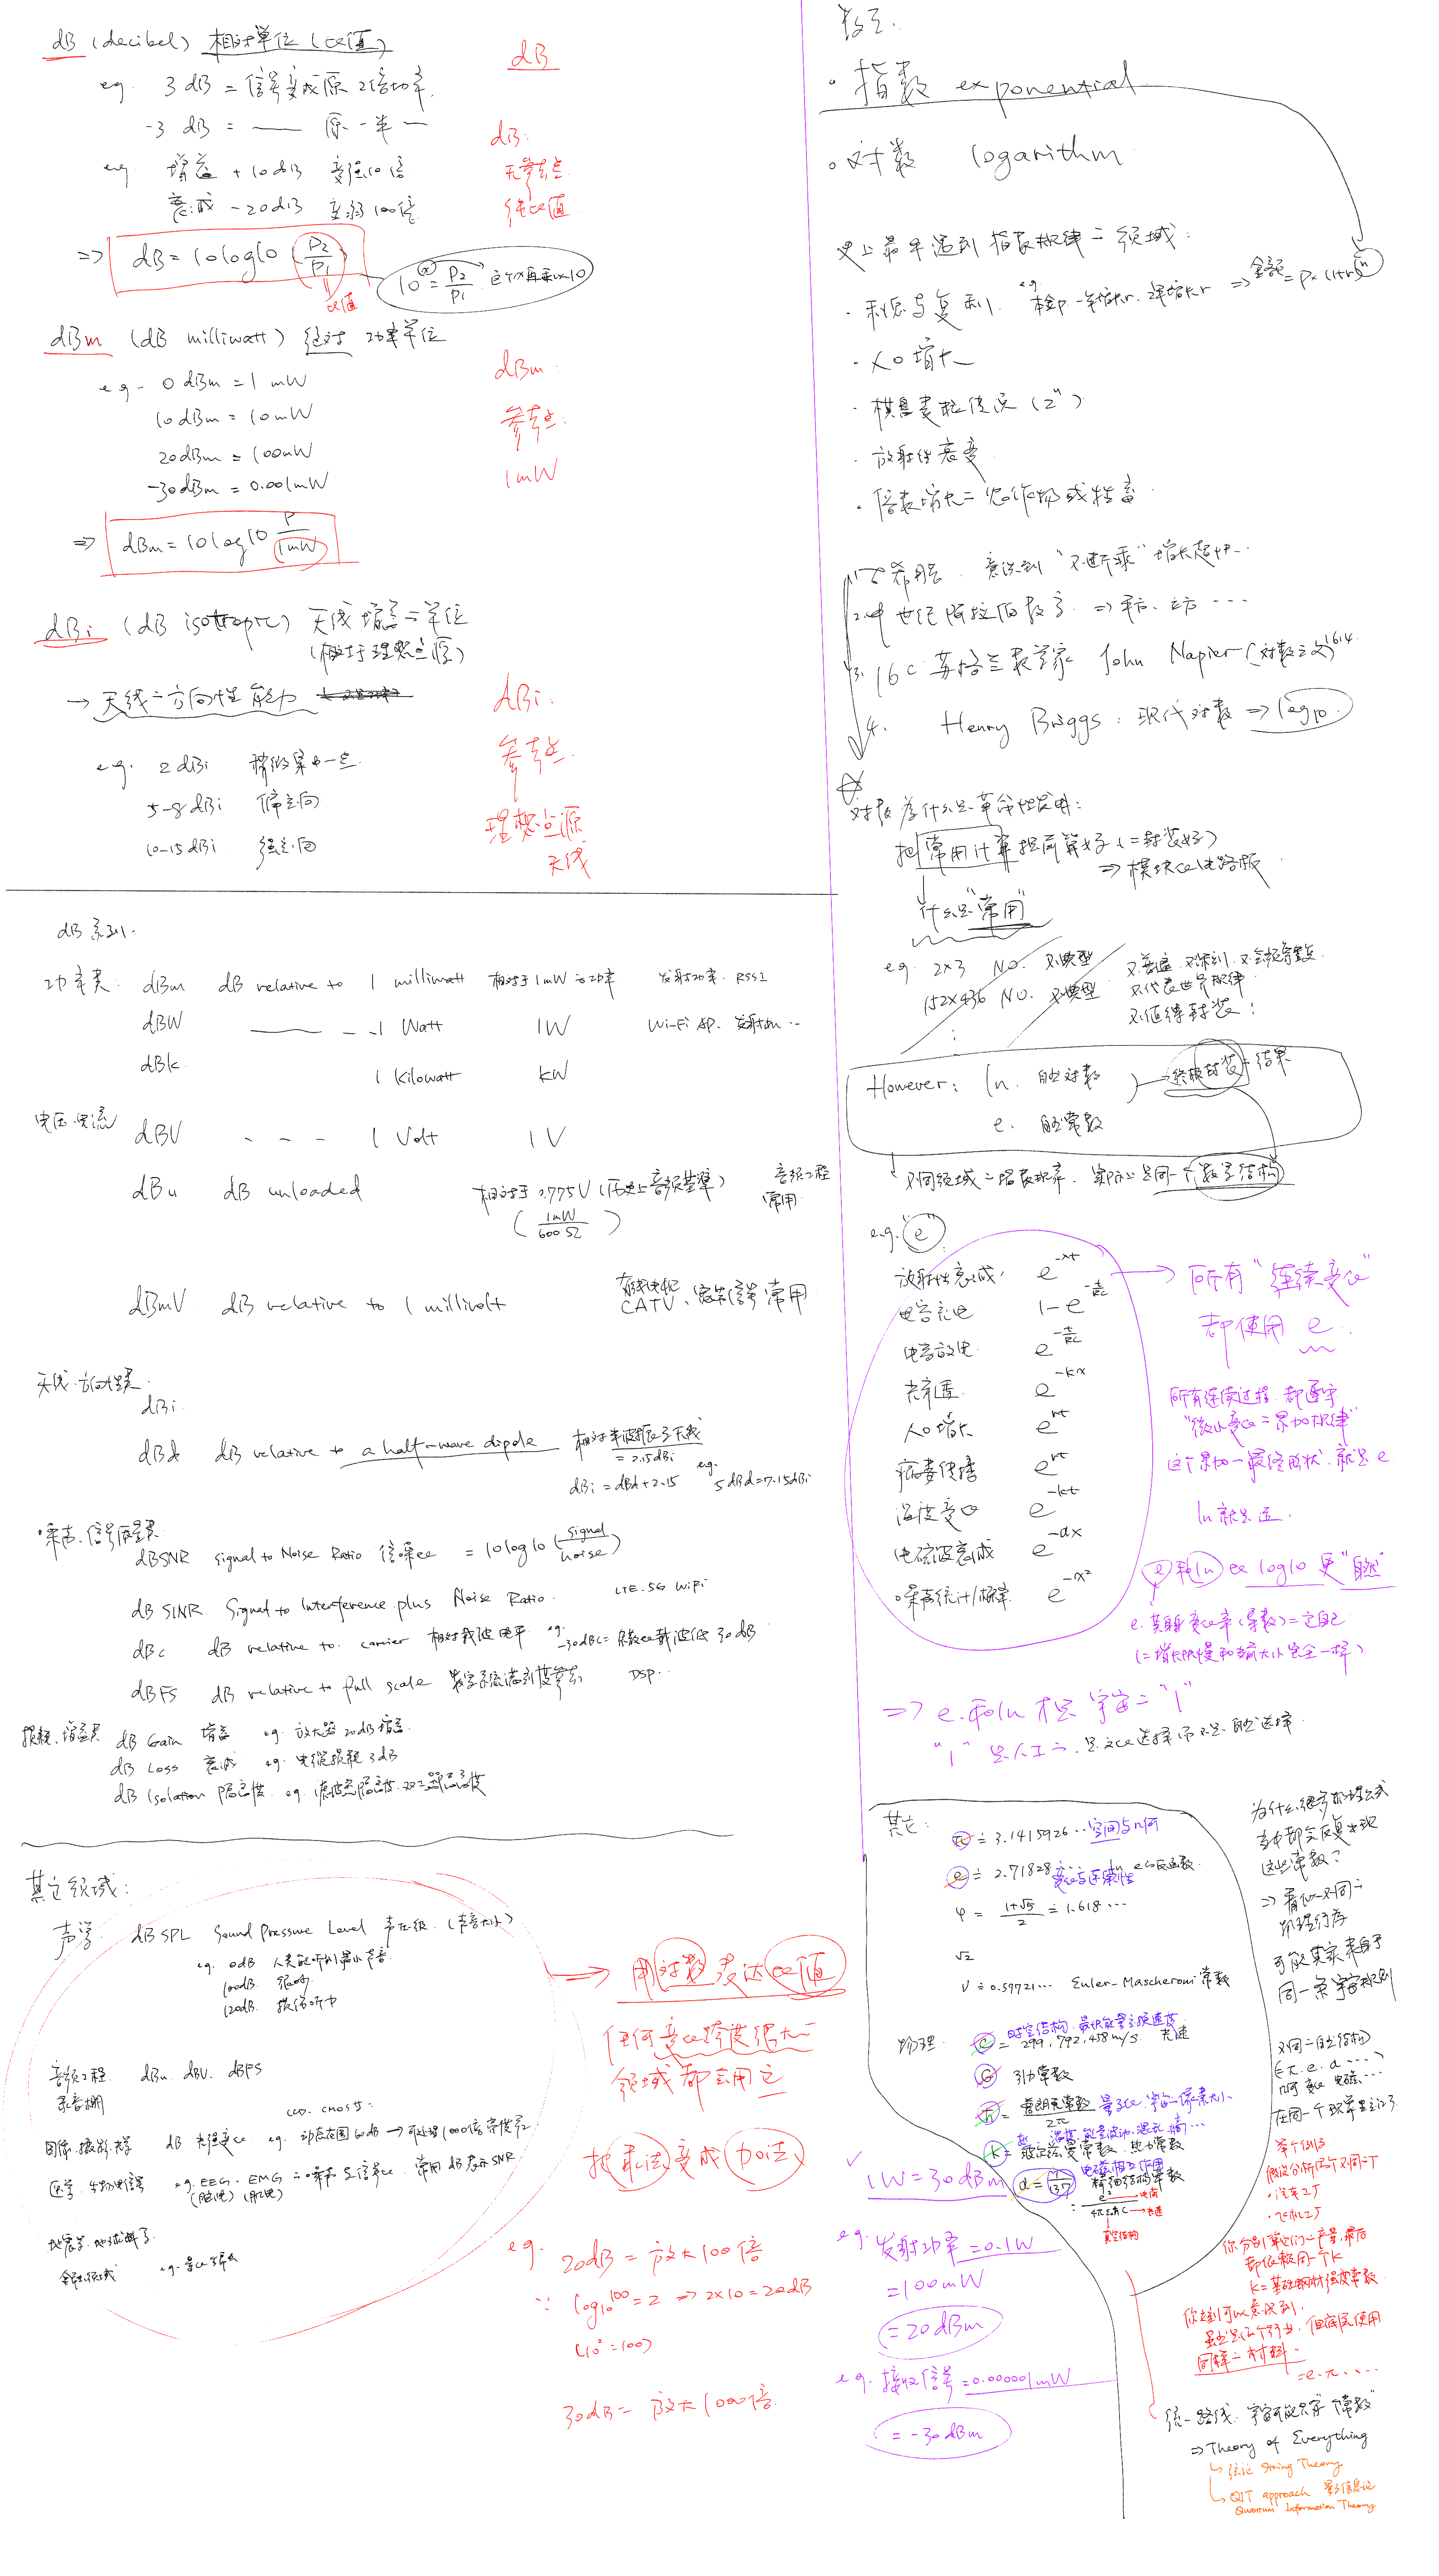 dB (decibel) 相对单位 (比值)
eg. 3 dB = 信号变成原 2倍功率.
-3 dB = —— 原一半一
eg. 增益 +10dB 变强10倍
衰减 -20dB 变弱100倍
⇒ dB = 10log10 (P2/P1)
比值
10^x = P2/P1
dB
dB:
无参考点
纯比值
dBm (dB milliwatt) 绝对 功率单位
eg. 0 dBm = 1 mW
10 dBm = 10 mW
20dBm = 100mW
-30dBm = 0.001mW
⇒ dBm = 10log10 P/1mW
dBm.
参考点:
1mW
dBi (dB isotropic) 天线增益二单位
(相对于理想点源)
→ 天线二方向性能力
eg. 2 dBi 稍微集中一点
5-8 dBi 偏定向
10-15dBi 强定向
dBi.
参考点.
理想点源
天线
dB系列.
功率类: dBm dB relative to 1 milliwatt 相对于1mW 功率 发射功率. RSSI
dBW —— - - 1 Watt 1W Wi-Fi AP.
dBk 1 Kilowatt kW
电压.电流 dBV - - - 1 Volt 1V
dBu dB unloaded 相对于0.775V (历史上音频基准) 音频工程常用
(1mW/600Ω)
dBmV dB relative to 1 millivolt CATV、宽带信号常用
天线.方向性类.
dBi.
dBd dB relative to a half-wave dipole 相对半波振子天线
= 2.15dBi
dBi = dBd+2.15 eg. 5dBd=7.15dBi
噪声.信号质量类
dBSNR signal to Noise Ratio 信噪比 = 10log10 (signal/noise)
dB SINR. Signal to Interference plus Noise Ratio. LTE.5G WiFi
dBc dB relative to carrier 相对载波电平 eg. -30dBc = 杂散比载波低30dB
dBFS dB relative to full scale 数字系统满刻度参考 DSP..
损耗、增益类 dB Gain 增益 eg. 放大器 20dB 增益.
dB Loss 衰减 eg. 电缆损耗 3dB
dB Isolation 隔离度. eg.
其它领域:
声学. dB SPL Sound Pressure Level 声压级. (声音大小)
eg. 0dB 人类能听到最小声音
100dB. 很吵
120dB. 损伤听力
音频工程. dBu. dBV. dBFS
录音棚
CCD. CMOS等.
图像.摄影.光学 dB 光强变化 eg. 动态范围 60dB → 可处理1000倍亮度差
医学.生物电信号 eg. EEG. EMG 二噪声与信号比. 常用 dB表示SNR.
(脑电) (肌电)
地震学.地球科学
金融领域
→ 用对数表达比值
任何变化跨度很大二
领域都会用它
把乘法变成加法
eg. 20dB = 放大100倍
∵ log10^100 = 2 → 2×10 = 20dB
(10² = 100)
30dB = 放大1000倍.
数学.
• 指数 exponential
• 对数 logarithm
史上最早遇到指数规律二领域:
· 利息与复利. ⇒ 金额 = P×(1+r)^n
· 人口增长
· 棋盘麦粒传说 (2^n)
· 放射性衰变
· 倍数增长二农作物或牲畜.
1. 古希腊. 意识到 "不断乘" 增长超快...
2. 中世纪阿拉伯数学. ⇒ 平方、立方 ...
3. 16c 苏格兰数学家 John Napier (对数之父) 1614
4. Henry Briggs: 现代对数 ⇒ log10.
对数为什么是革命性发明:
把常用计算提前算好 (二封装好)
⇒ 模块化电路版
什么是"常用"
eg. 2×3 NO. 不典型
152×436 NO. 不典型
不代表世界规律
不值得封装!
However: ln. 自然对数
e. 自然常数
→ 终极封装二结果
不同领域二增长规律. 实际上是同一个数学结构
e.g. "e"
放射性衰减. e^-λt
电容充电 1-e^-t/RC
电容放电. e^-t/RC
光衰. e^-kx
人口增长 e^rt
病毒传播 e^rt
温度变化 e^-kt
电磁波衰减 e^-αx
噪声统计/概率. e^-x²
→ 所有 "连续变化"
都使用 e.
所有连续过程. 都遵守
"微小变化二累加规律"
这个累加一最终形状. 就是 e
ln就是逆.
e和ln比log10更"自然"
e. 其自身变化率(导数)=它自己
(二增长快慢和当前大小完全一样)
⇒ e.和ln 才是宇宙二 "1"
"1" 是人工二. 是文化选择而不是自然选择.
其它:
π ≐ 3.1415926... 空间与几何
e ≐ 2.71828... 变化与连续性
φ = (1+√5)/2 = 1.618...
√2
γ ≐ 0.57721... Euler-Mascheroni 常数
物理: c = 299,792,458 m/s. 光速
时空结构.
G 引力常数
ħ = 普朗克常数/2π 量子化.宇宙二像素大小.
k = 玻尔兹曼常数. 热力常数
α = 1/137 精细结构常数
电磁相互作用
电荷
光速
真空结构
为什么很多物理公式
当中都会反复出现
这些常数?
⇒ 看似不同二
物理行为
可能其实来自于
同一条宇宙规则
不同二自然结构
(π. e. α ...)
几何 变化 电磁...
举个例子
假设分析两个不同工厂
· 汽车工厂
· 飞机工厂
你分别算它们二产量,最后
都依赖同一个k
k = 基础钢材强度常数.
你立刻可以意识到.
虽然是两个行业, 但底层使用
同样二材料.
=e.π....
统一路线. 宇宙可能只有一个常数
⇒ Theory of Everything
↳ 弦论 String Theory
↳ QIT approach 量子信息论
Quantum Information Theory
1W = 30dBm
eg. 发射功率 = 0.1W
= 100mW
= 20dBm
e.g. 接收信号 = 0.000001mW
= -30dBm